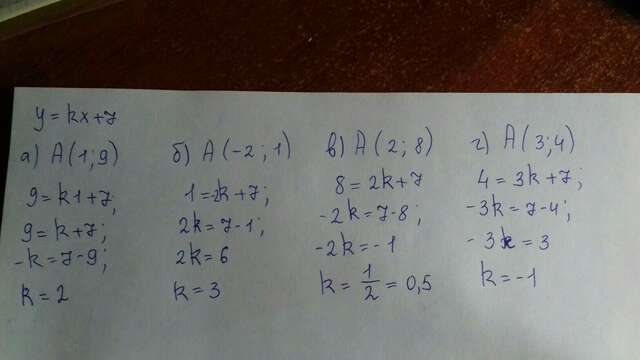 y = kx + 7
а) A (1; 9)
9 = k1 + 7;
9 = k + 7;
-k = 7 - 9;
k = 2
б) A (-2; 1)
1 = -2k + 7;
2k = 7 - 1;
2k = 6
k = 3
в) A (2; 8)
8 = 2k + 7
-2k = 7 - 8;
-2k = -1
k = 1/2 = 0,5
г) A (3; 4)
4 = 3k + 7;
-3k = 7 - 4;
-3k = 3
k = -1